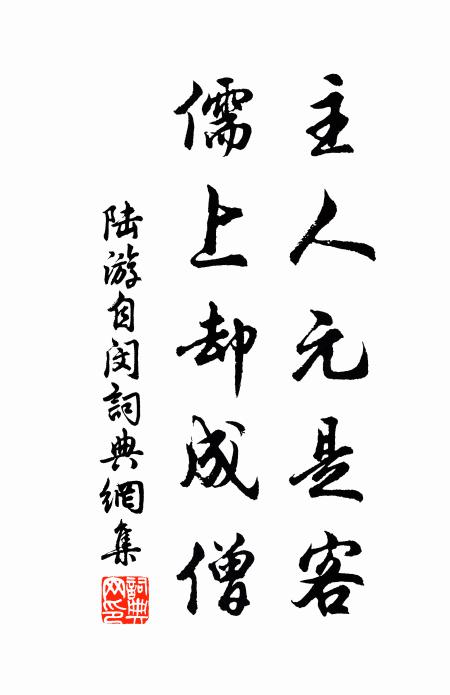 主人元是客
儒上却成僧
陆游自闵詞典網集
詞典网印